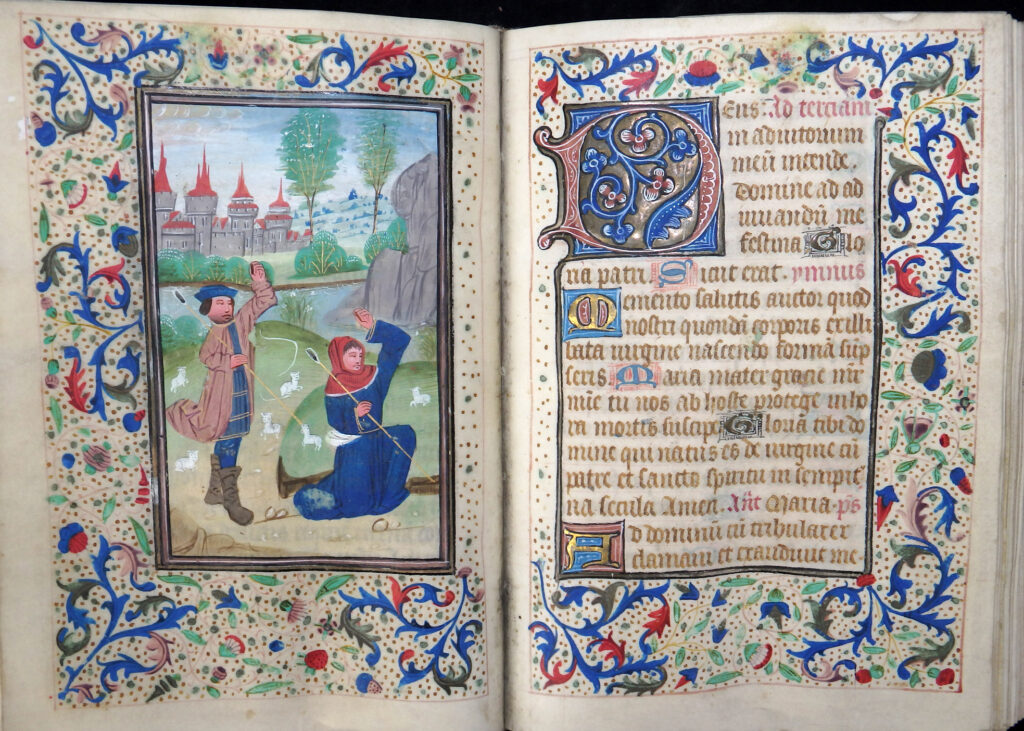 Deus Ad terciam
in adiutorium
meū intende.
Domine ad ad
iuuandū me
festina Glo
ria patri Sicut erat. ymnus
Memento salutis auctor quod
nostri quondā corporis ex illi
bata uirgine nascendo formā sup
seris Maria mater gracie mr̄
mie tu nos ab hoste protege in ho
ra mortis suscipe Gloria tibi do
mine qui natus es de uirgine cū
patre et sancto spiritu in
na secula Amen. Añt Maria. p̄s
Ad dominū cū tribularer
clamaui et exaudiuit me